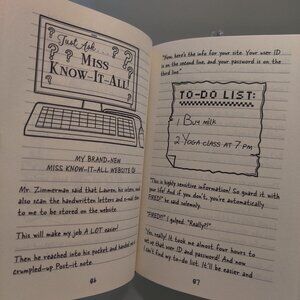 Just Ask...
Miss
Know-It-All!
MY BRAND-NEW
MISS KNOW-IT-ALL WEBSITE
Mr. Zimmerman said that Lauren, his intern, would
also scan the handwritten letters and e-mail them
to me to be stored on the website.
This will make my job A LOT easier!
Then he reached into his pocket and handed me a
crumpled-up Post-it note.
86
"You, here's the info for your site. Your user ID
is on the second line, and your password is on the
third line."
TO-DO LIST:
1 Buy milk
2 Yoga class at 7 pm
"This is highly sensitive information! So guard it with
your life! And if you don't, you're automatically
FIRED!" he said solemnly.
"FIRED?!" I gulped. "Really?!"
"Yes, really! It took me almost four hours to
set up that user ID and password! And now I
can't find my to-do list. It'll be easier and
87